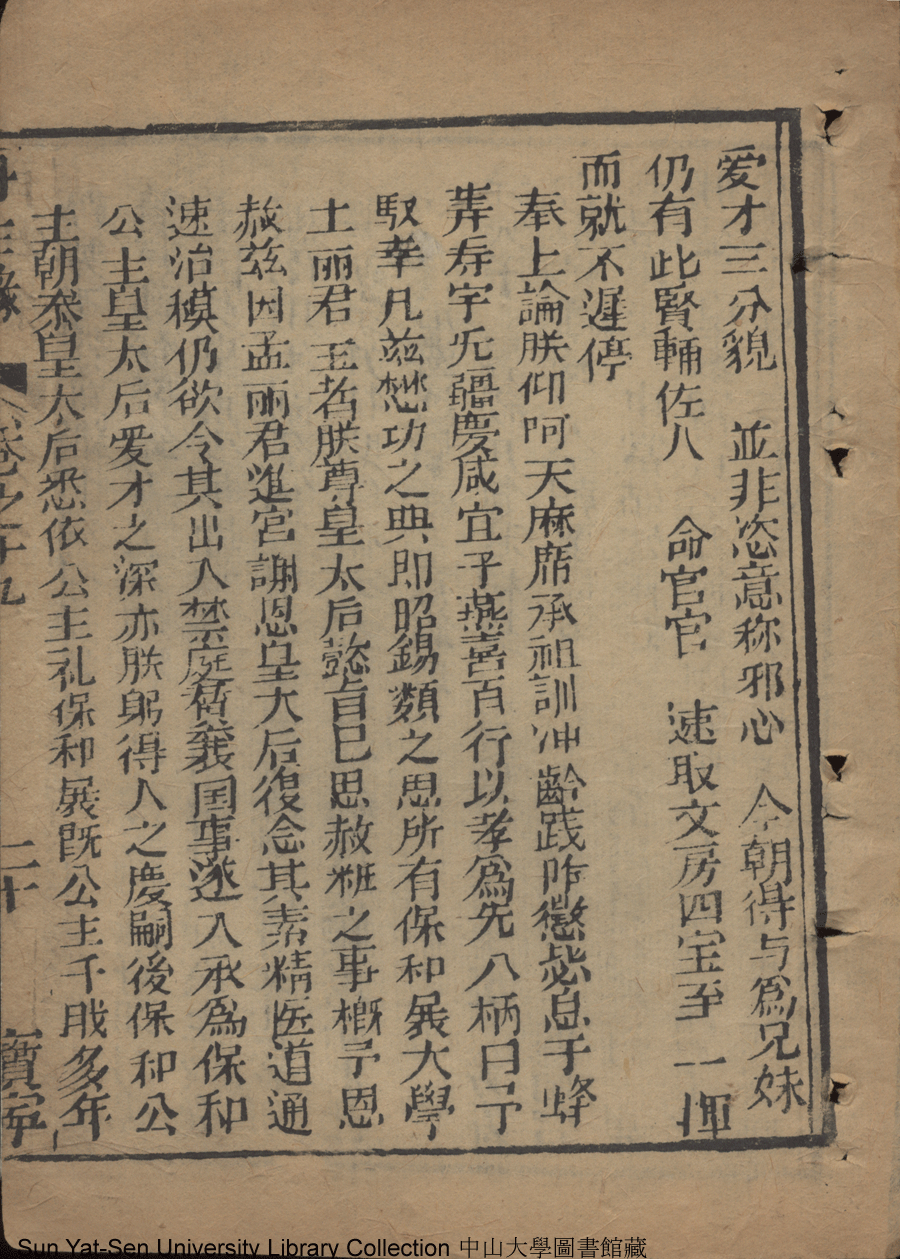 爱才三分貌　並非恣意称邪心　今朝得与為兄妹
仍有此賢輔佐人　命官官　速取文房四宝至　一揮
而就不遲停
奉上論朕仰阿天麻席承祖訓冲齡践咋懲毖息于蜂
寿宇无疆慶咸宜子燕善百行以孝為先八柄曰予
馭幸凡兹懋功之典即昭錫類之思所有保和展大學
土丽君王若朕尊皇太后懿旨巳思赦粧之事概予恩
赦兹因孟丽君進宮謝恩皇大后復念其素精医道通
速治模仍欲令其出入禁庭賛襄国事遂入承為保和
公主皇太后爱才之深亦朕躬得人之慶嗣後保和公
主朝叅皇太后悉依公主礼保和展既公主千戝多年
再生緣　卷之十九　二十　寶寧
Sun Yat-Sen University Library Collection 中山大學圖書館藏